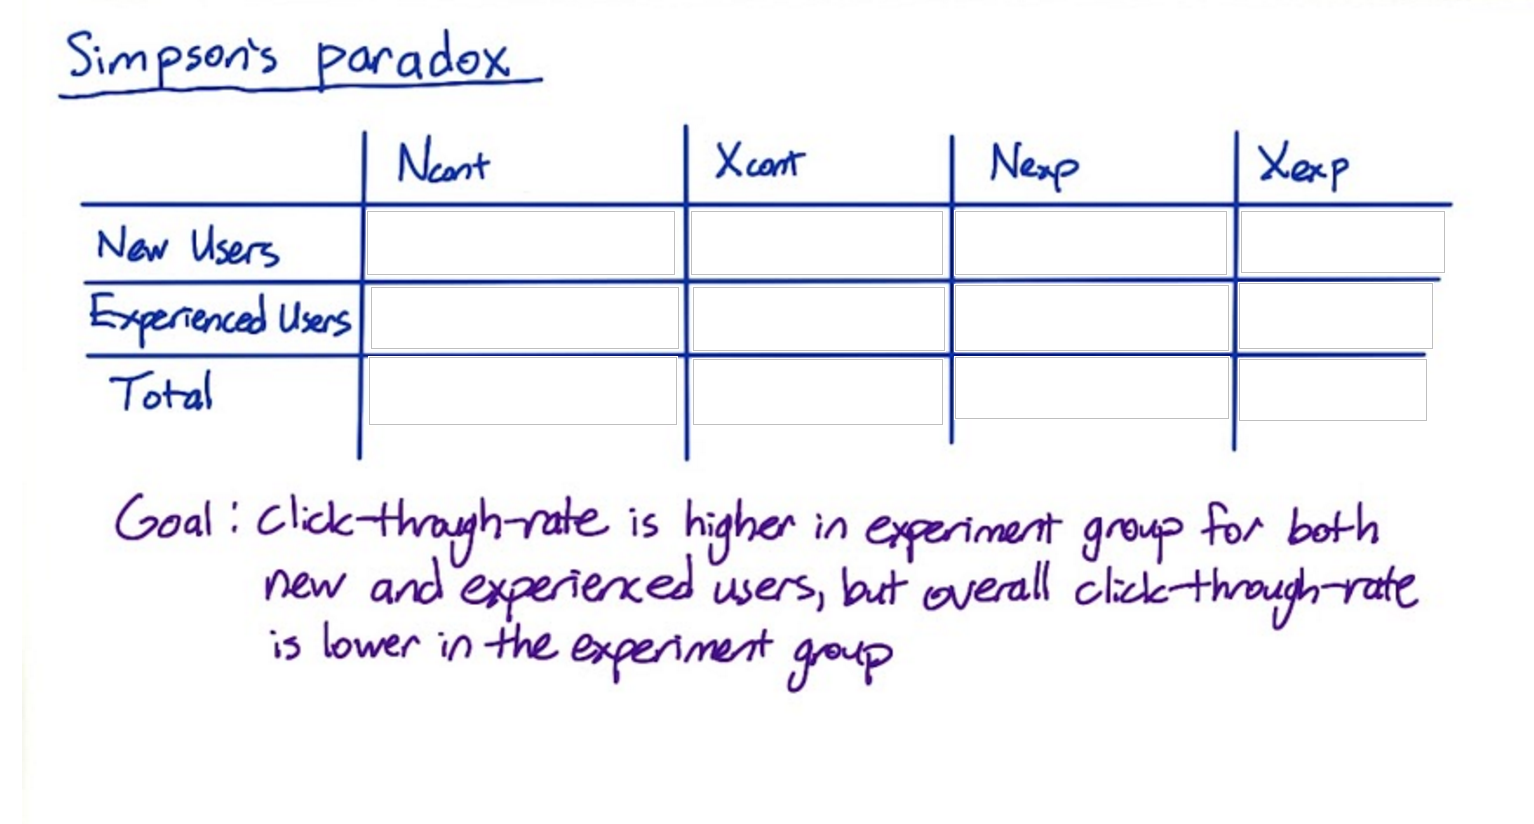 Simpson's paradox
Ncont Xcont Nexp Xexp
New Users
Experienced Users
Total
Goal: click-through-rate is higher in experiment group for both
new and experienced users, but overall click-through-rate
is lower in the experiment group